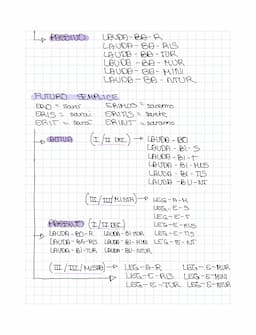 PASSIVO LAUDA-BA-R
LAUDA-BA-RIS
LAUDA-BA-TUR
LAUDA-BA-MUR
LAUDA-BA-MINI
LAUDA-BA-NTUR
FUTURO SEMPLICE
ERO = sarò ERIMUS = saremo
ERIS = sarai ERITIS = sarete
ERIT = sarà ERUNT = saranno
ATTIVA (I/II DEC.) → LAUDA-BO
LAUDA-BI-S
LAUDA-BI-T
LAUDA-BI-MUS
LAUDA-BI-TIS
LAUDA-BU-NT
(III/IV/MISTA) → LEG-A-M
LEG-E-S
LEG-E-T
LEG-E-MUS
LEG-E-TIS
LEG-E-NT
PASSIVO (I/II DEC)
LAUDA-BO-R LAUDA-BI-MUR
LAUDA-BE-RIS LAUDA-BI-MINI
LAUDA-BI-TUR LAUDA-BU-NTUR
(III/IV/MISTA) → LEG-A-R LEG-E-MUR
LEG-E-RIS LEG-E-MINI
LEG-E-TUR LEG-E-NTUR